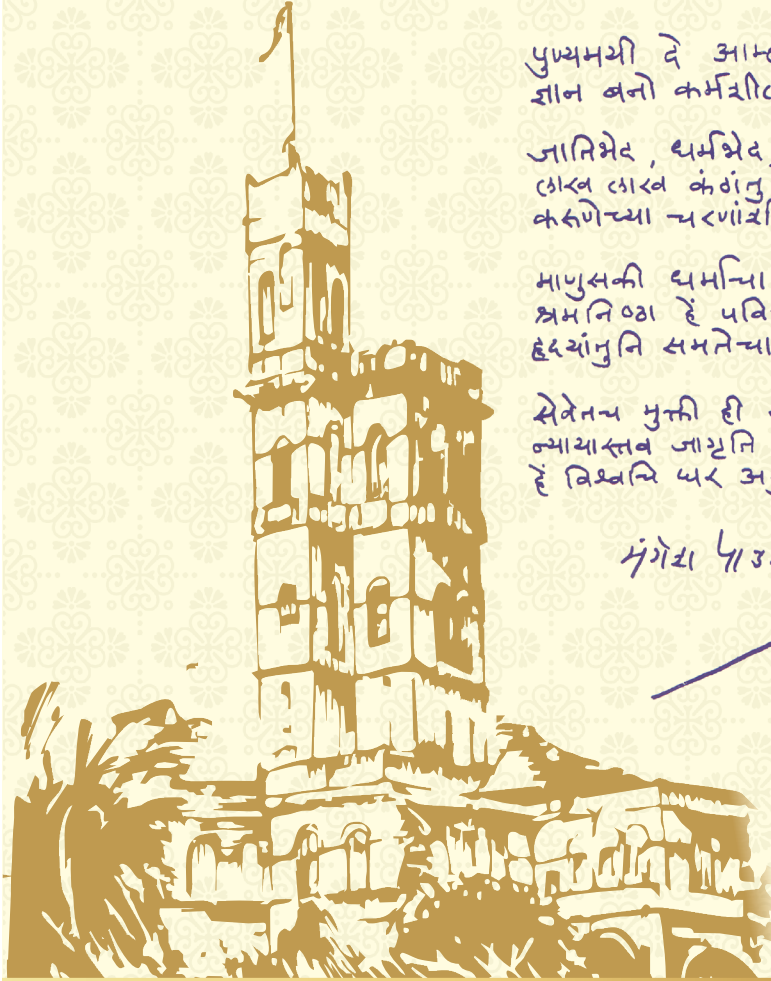 पुण्यमयी दे आम्
ज्ञान बनो कर्मशील
जातिभेद, धर्मभेद,
लाख लाख कंठांतु
करूणेच्या चरणांशी
माणुसकी धर्माचा
श्रमनिष्ठा हें पवि
हृदयांतुनि समतेचा
सेवेतच मुक्ती ही
न्यायास्तव जागृति
हें विश्वचि घर अ
मंगेश पाड